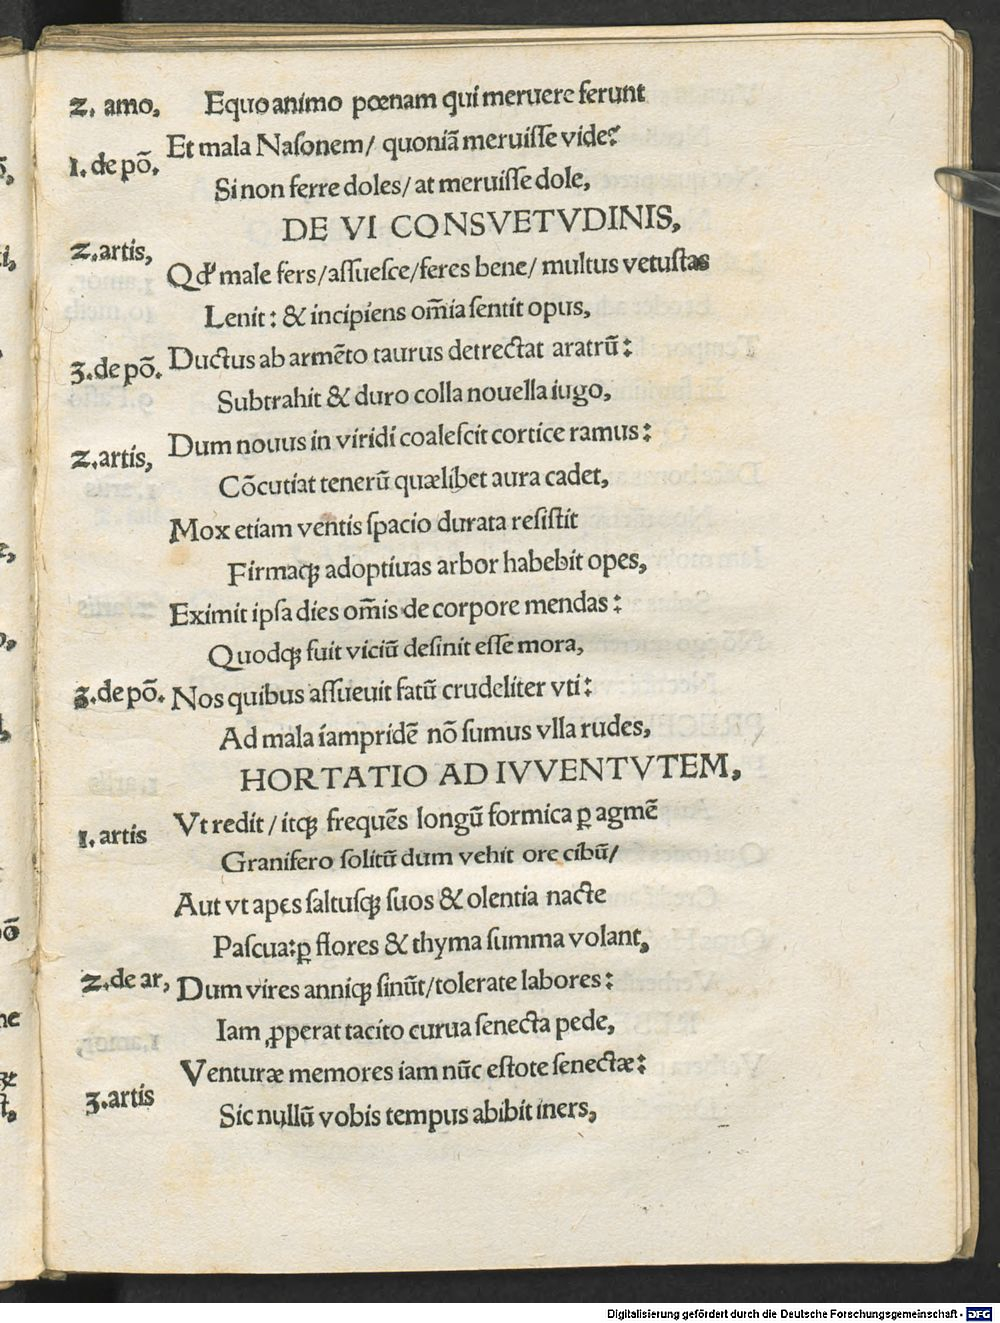 2. amo, Equo animo pœnam qui meruere ferunt
Et mala Nasonem/ quoniā meruiſſe vide?
1. de põ. Si non ferre doles/ at meruiſſe dole,
DE VI CONSVETVDINIS,
2. artis, Qđ male fers/aſſueſce/feres bene/ multus vetuſtas
Lenit: & incipiens om̄ia ſentit opus,
3. de põ. Ductus ab armēto taurus detrectat aratrū:
Subtrahit & duro colla nouella iugo,
2. artis, Dum nouus in viridi coaleſcit cortice ramus:
Cōcutiat tenerū quælibet aura cadet,
Mox etiam ventis ſpacio durata reſiſtit
Firmaꝗ adoptiuas arbor habebit opes,
Eximit ipſa dies om̄is de corpore mendas:
Quodꝗ fuit viciū deſinit eſſe mora,
3. de põ. Nos quibus aſſueuit fatū crudeliter vti:
Ad mala iampridē nō ſumus vlla rudes,
HORTATIO AD IVVENTVTEM,
1. artis Vt redit/ itꝗ frequēs longū formica ꝑ agmē
Granifero ſolitū dum vehit ore cibū/
Aut vt apes ſaltuſꝗ ſuos & olentia nacte
Paſcua:ꝑ flores & thyma ſumma volant,
2. de ar, Dum vires anniꝗ ſinūt/tolerate labores:
Iam ꝓperat tacito curua ſenecta pede,
3. artis Venturæ memores iam nūc eſtote ſenectæ:
Sic nullū vobis tempus abibit iners,
Digitalisierung gefördert durch die Deutsche Forschungsgemeinschaft - DFG